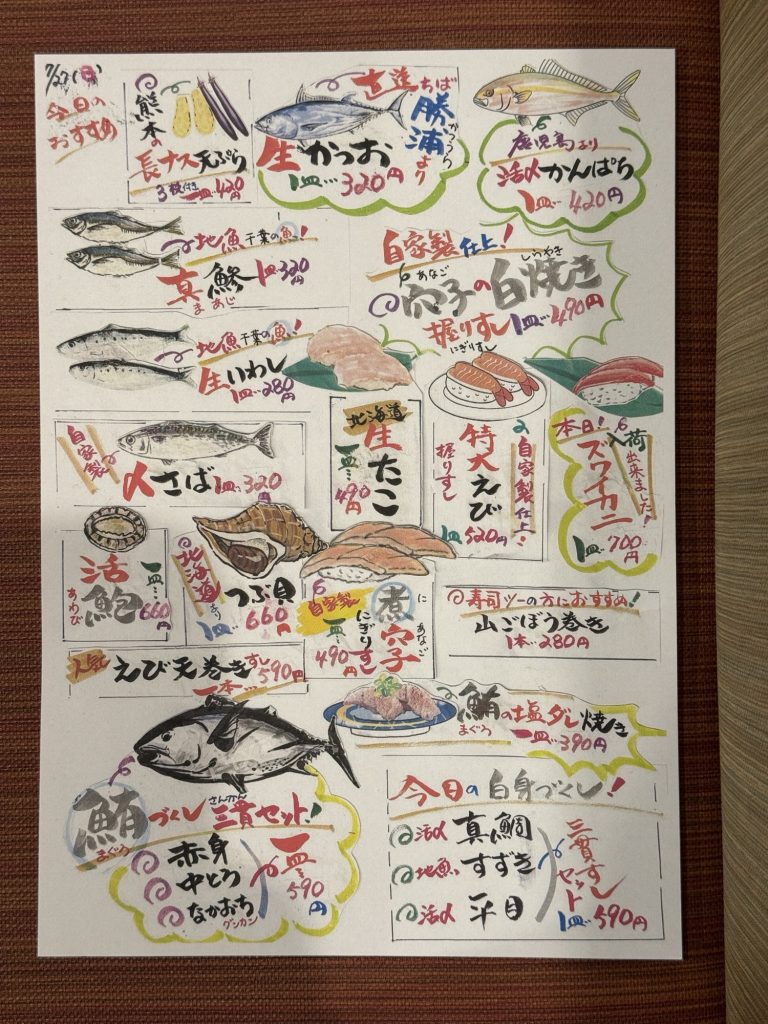 7/27(日)
今日の
おすすめ
熊本の
長ナス天ぷら
3枚付き 一皿…420円
直送 ちば
勝浦より
かつうら
生かつお
1皿…320円
鹿児島より
活〆かんぱち
1皿…420円
地魚 千葉の魚!
真鯵 1皿320円
まあじ
自家製仕上!
あなご しらやき
穴子の白焼き
握りすし 1皿…490円
にぎりずし
地魚 千葉の魚!
生いわし
1皿…280円
自家製
〆さば 1皿…320円
北海道
生たこ
一皿…490円
自家製仕上!
特大えび
握りすし
1皿520円
本日!入荷出来ました!
ズワイカニ
1皿…700円
活鮑
あわび
一皿…660円
北海道より
つぶ貝
1皿…660円
自家製
煮穴子
に あなご
にぎりずし
一皿…490円
寿司ツーの方におすすめ!
山ごぼう巻き
1本…280円
人気
えび天巻きすし
一本…590円
鮪の塩ダレ焼き
まぐろ
一皿…390円
鮪づくし三貫セット!
まぐろ さんかん
赤身
中とろ
なかおち
グンカン
一皿…590円
今日の白身づくし!
活〆 真鯛
地魚 すずき
活〆 平目
三貫すしセット
1皿…590円